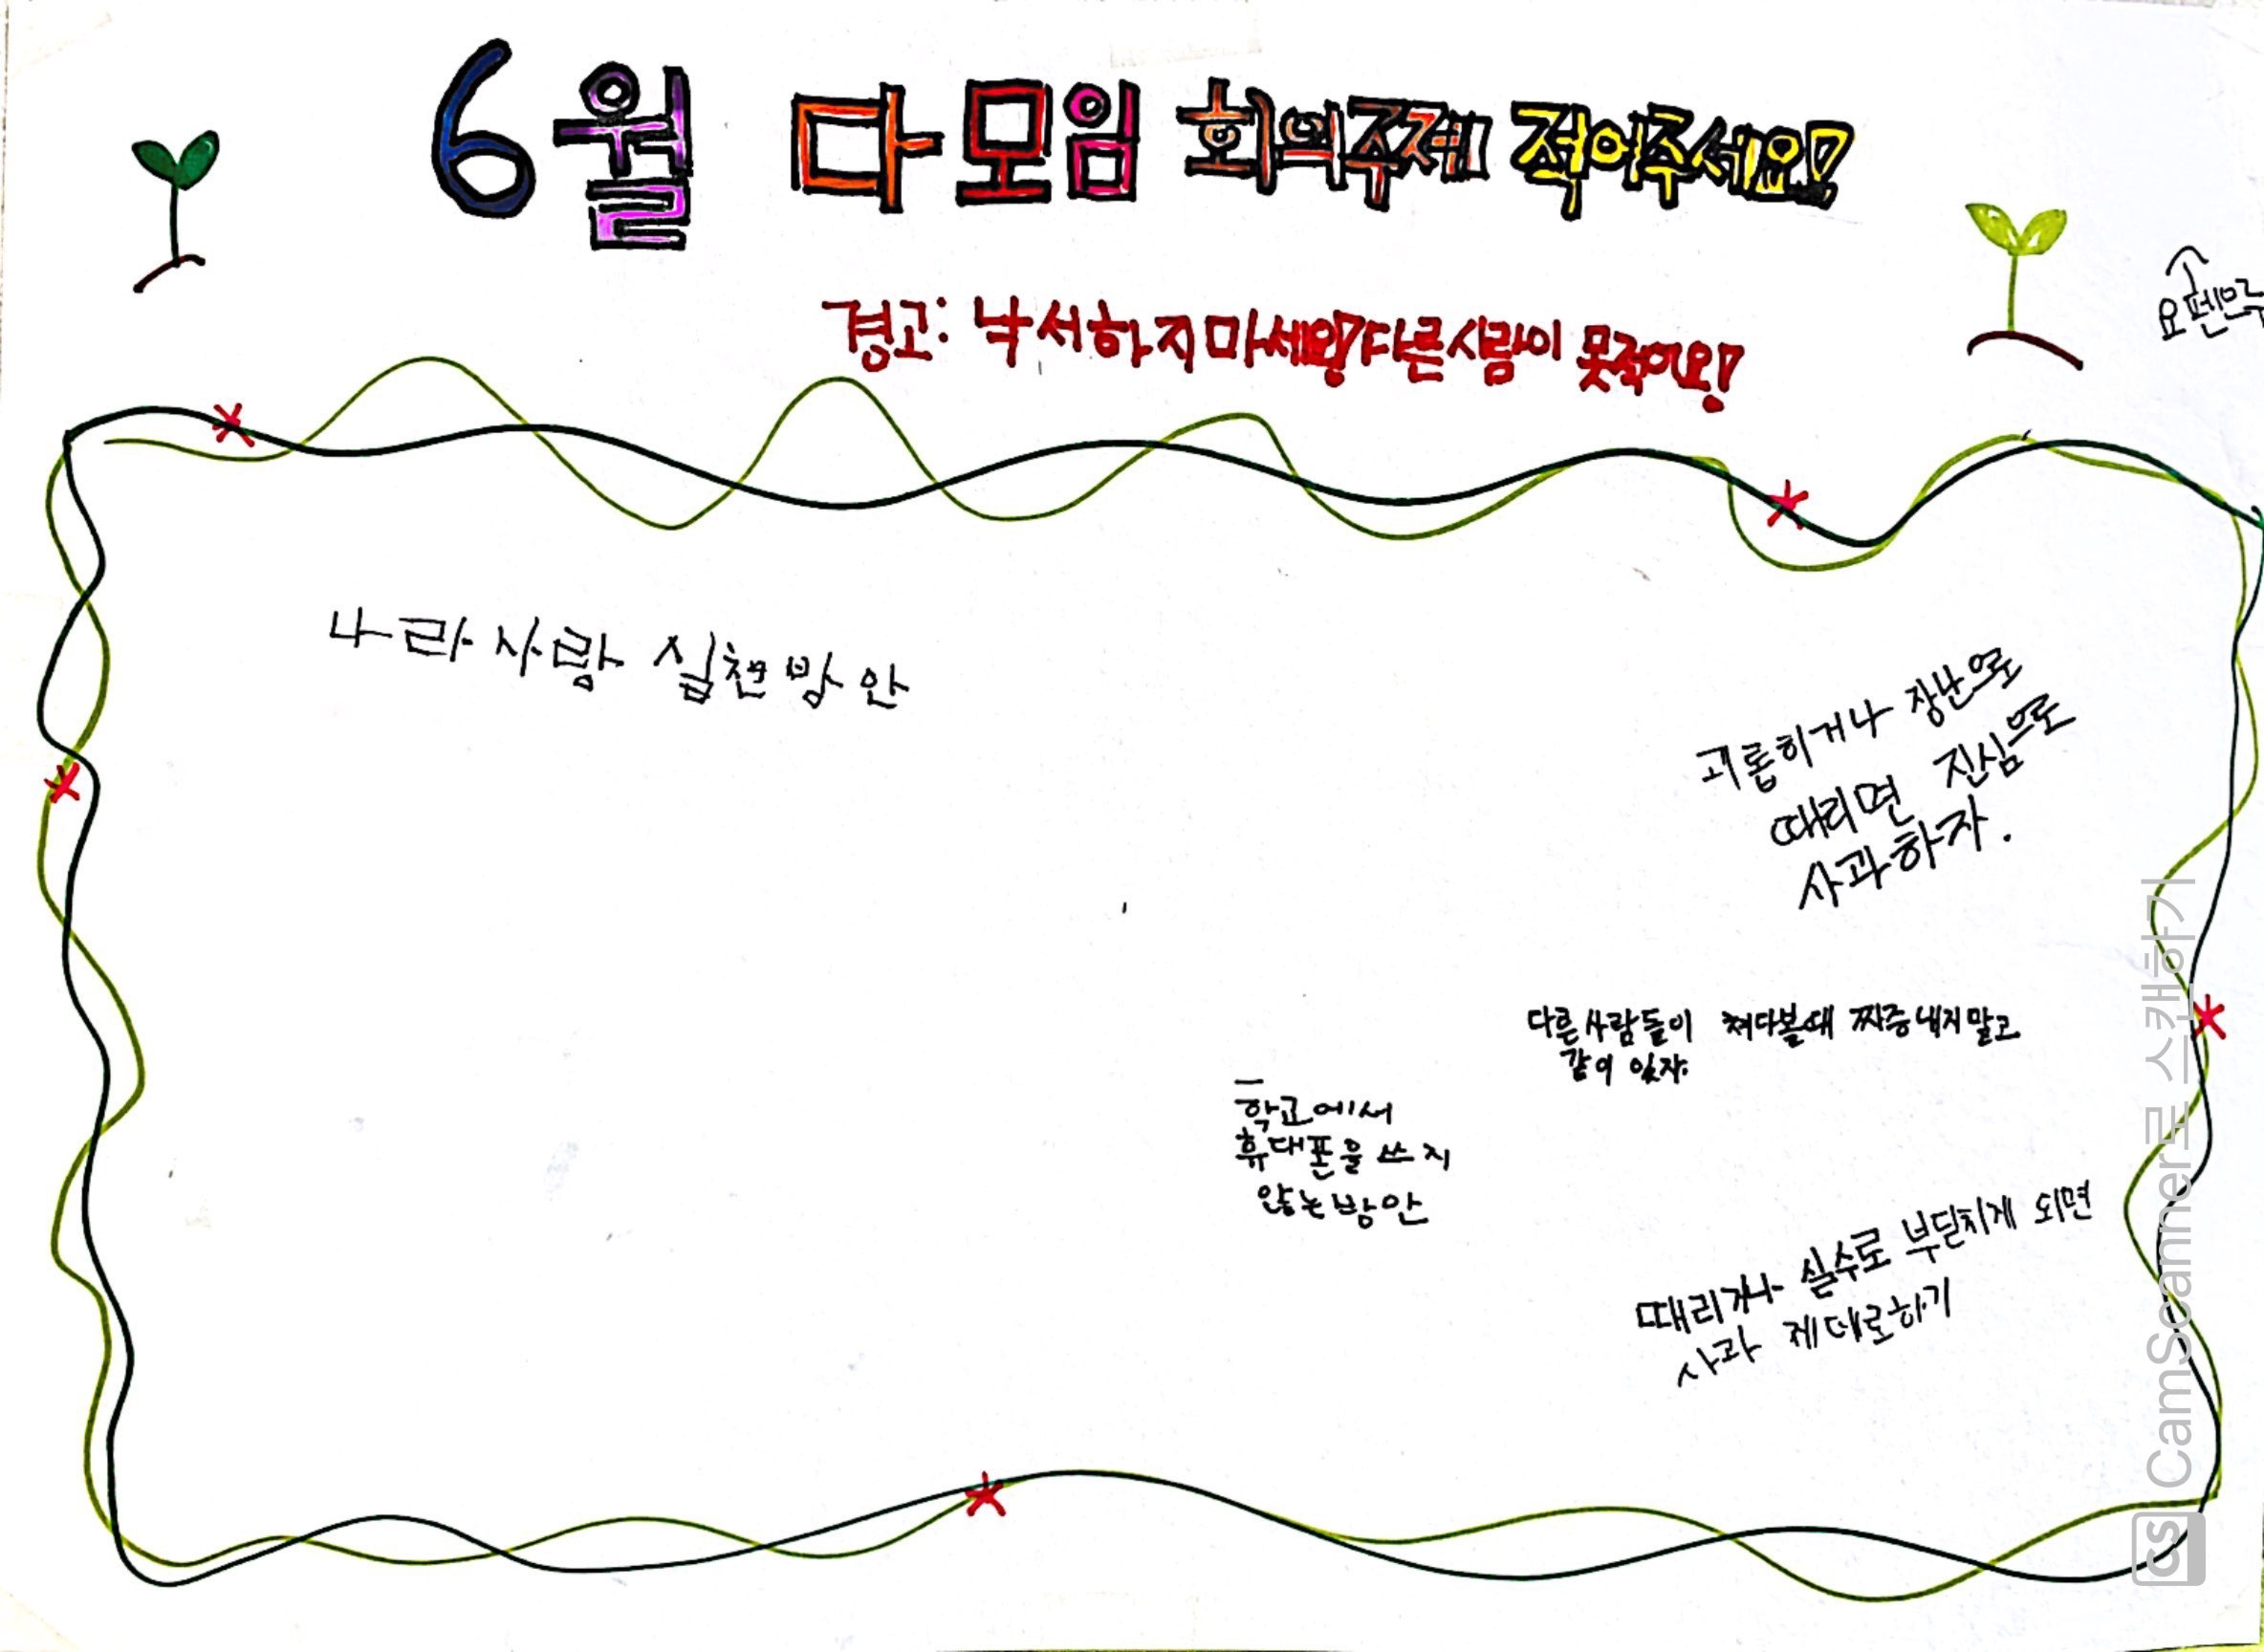 6월 다모임 회의주제 적어주세요!
경고: 낙서하지마세요! 다른사람이 못적어요!
나라사랑 실천방안
괴롭히거나 장난으로
때리면 진심으로
사과하자.
다른사람들이 쳐다볼때 찌증내지말고
같이 있자.
학교에서
휴대폰을 쓰지
않는방안
때리거나 실수로 부딛치게 되면
사과 제데로하기
CS CamScanner로 스캔하기